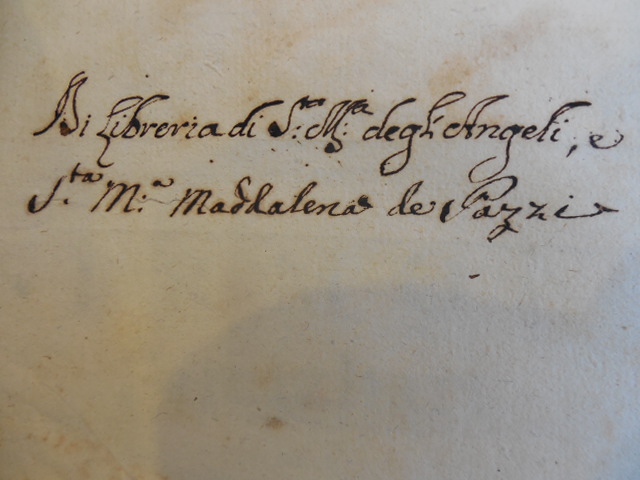 Di Libreria di S.ta M.a degl'Angeli, e
S.ta M.a Maddalena de Pazzi